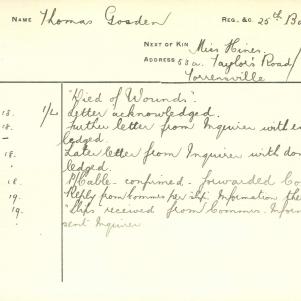 NAME Thomas Gosden REG. &C. 25th Ba
NEXT OF KIN Miss Hines.
ADDRESS 53a. Taylor's Road/
Torrensville
"Died of Wounds".
18. 1/2 Letter acknowledged.
18. Further letter from Inquirer with
ledged.
18. Later letter from Inquirer with don
ledged.
18. P/Cable - confirmed - forwarded Co
19. Reply from Commrs per slip. Information the
19. " slips received from Commrs. Inform
sent Inquirer